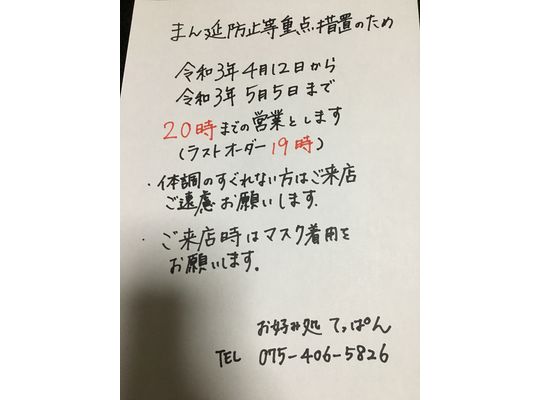 まん延防止等重点措置のため
令和3年4月12日から
令和3年5月5日まで
20時までの営業とします
(ラストオーダー19時)
・体調のすぐれない方はご来店
ご遠慮お願いします.
・ご来店時はマスク着用を
お願いします。
お好み処 てっぱん
TEL 075-406-5826